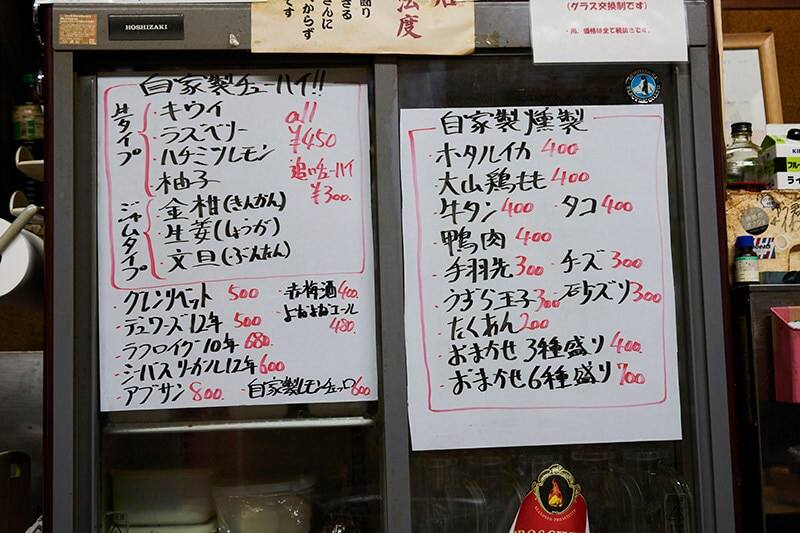 HOSHIZAKI
法度
(グラス交換制です)
尚、価格は全て税抜きです。
自家製チューハイ!!
生タイプ
・キウイ
・ラズベリー
・ハチミツレモン
・柚子
all
¥450
追いチューハイ
¥300.
ジャムタイプ
・金柑(きんかん)
・生姜(しょうが)
・文旦(ぶんたん)
・グレンリベット 500
・デュワーズ12年 500
・ラフロイグ10年 680.
・シーバスリーガル12年 600
・アブサン 800.
・赤梅酒 400.
・よなよなエール
480.
・自家製レモンチェッロ 600
自家製燻製
・ホタルイカ 400
・大山鶏もも 400
・牛タン 400 ・タコ 400
・鴨肉 400
・手羽先 300 ・チーズ 300
・うずら玉子 300 ・砂ズリ 300
・たくあん 200
・おまかせ3種盛り 400.
・おまかせ6種盛り 700